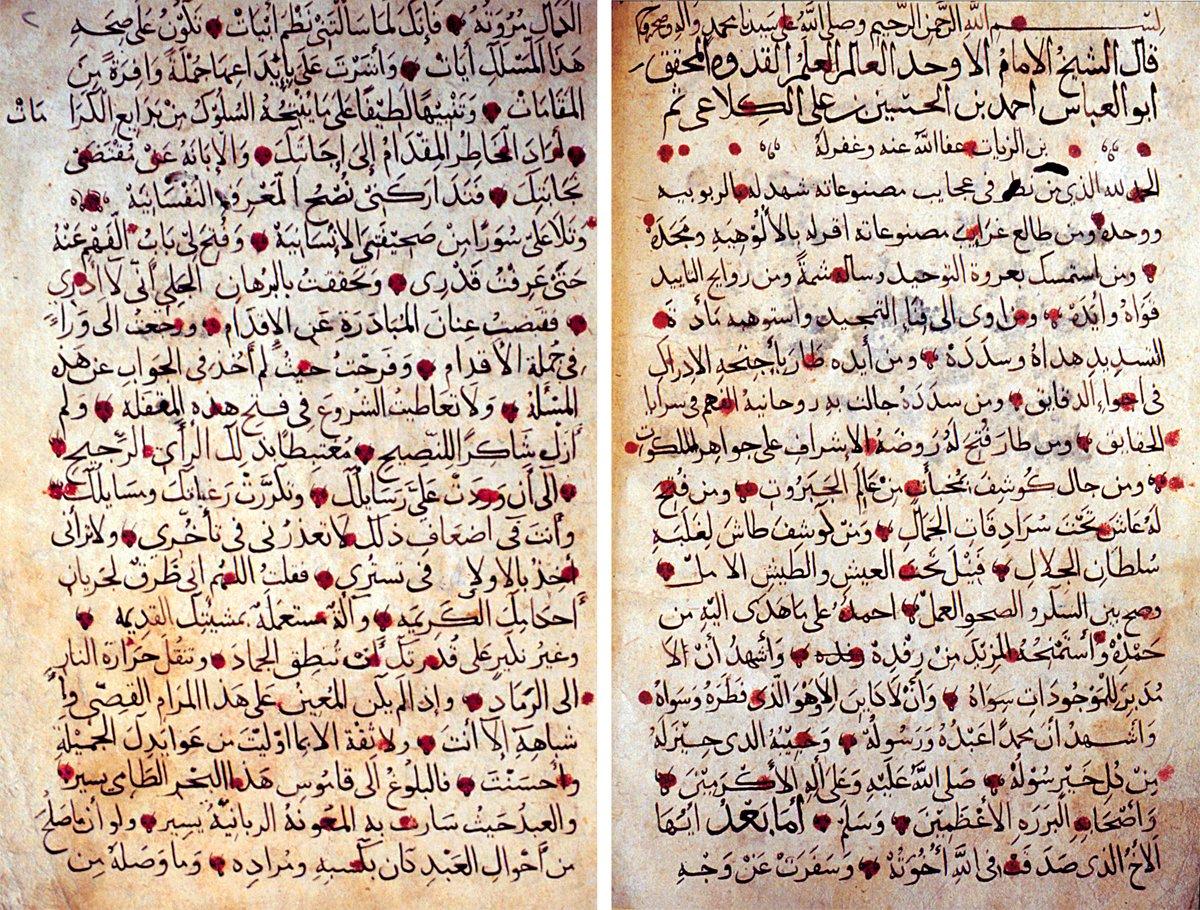 بسم الله الرحمن الرحيم وصلى الله على سيدنا محمد وآله
قال الشيخ الامام الاوحد العالم العلم القدوه المحقق
ابو العباس احمد بن الحسين بن علي الكلاعي ثم
بن الزيات عفا الله عنه وغفر له
الحمد لله الذي من في عجايب مصنوعاته شهد له بالربوبيه
ووحده ومن طالع غرايب مصنوعاته اقر له بالألوهية ومجده
ومن استمسك بعروة التوحيد ومن روايح التاييد
فؤاه وأيده ومن اوى الى فنا التمجيد واستوهبه
التسديد هداه وسدده ومن أيده طار بأجنحه الإدراك
في اجواء الدقايق ومن سدده جالت به روحانية الفهم في سرايا
الحقايق ومن طار فتح له روضة الإشراف على جواهر الملكوت
ومن جال كوشف بمخبآت من عالم الجبروت ومن فتح
له عاش تحت سرادقات الجمال ومن كوشف طاش لغلبه
سلطان الجلال قيل تحت العيش والطيش الا من
وضح بين السكر والصحو العمل احمده على ما هدى اليه من
حمده وأستمنحه المزيد من رفده وأشهد أن لا
مدبر للموجودات سواه وأن لا كاين الا وهو الذي فطره وسواه
وأشهد أن محمدا عبده ورسوله وحبيبه الذي
من كل خير سوله صلى الله عليه وعلى اله الأكرمين
وأصحابه البرره الأعظمين وسلم أما بعد أيها
الاخ الذي صدقت في الله أخوته وسفرت عن وجه
الكمال مروته فإنك لما سالتني نظم ابيات تكون على صحه
هذا المسلك آيات وأشرت علي بإيداعها جملة وافرة من
المقامات وتنبيها لطيفا على ما ينتجه السلوك من بدايع الكرا مات
أراد الخاطر المقدام إلى إجابتك والإبانه عن مقتضى
فتداركني نصح المعروف النفسانية
وتلا علي سورا من صحيفتي الإنسانية وفتح لي باب الفهم عنه
حتى عرفت قدري وتحققت بالبرهان الجلي أني لا أدري
فقبضت عنان المبادرة عن الإقدام ورجعت الى وراء
في جملة الأقدام وفرحت حيث لم أخذ في الجواب عن هذه
المسئلة ولا تعاطيت الشروع في فتح هذه المقفلة ولم
أزل شاكرا للنصيح مغتبطا بذلك الرأي الرجيح
الى أن وردت علي رسايلك وتكررت رغباتك ومسايلك
وأنت في اضعاف ذلك لا تعذرني في تأخري ولا تراني
أخذ بالاولى في تستري فقلت اللهم اني ظرف لجريان
أحكامك الكريمه وآلة مستعملة بمشيئتك القديمه
وغير نكير على قدرتك أن تنطق الجماد وتنقل حرارة النار
الى الرماد وإذ لم يكن المعين على هذا المرام القصي وا
شباهه إلا أنت ولا ثقة الا بما اوليت من عوايدك الجميلة
وأحسنت فالبلوغ الى قاموس هذا البحر الطامي يسير
والعبد حيث سارت به المعونة الربانية يسير ولو أن ما صلح
من أحوال العبد كان بكسبه ومراده وما وصله من